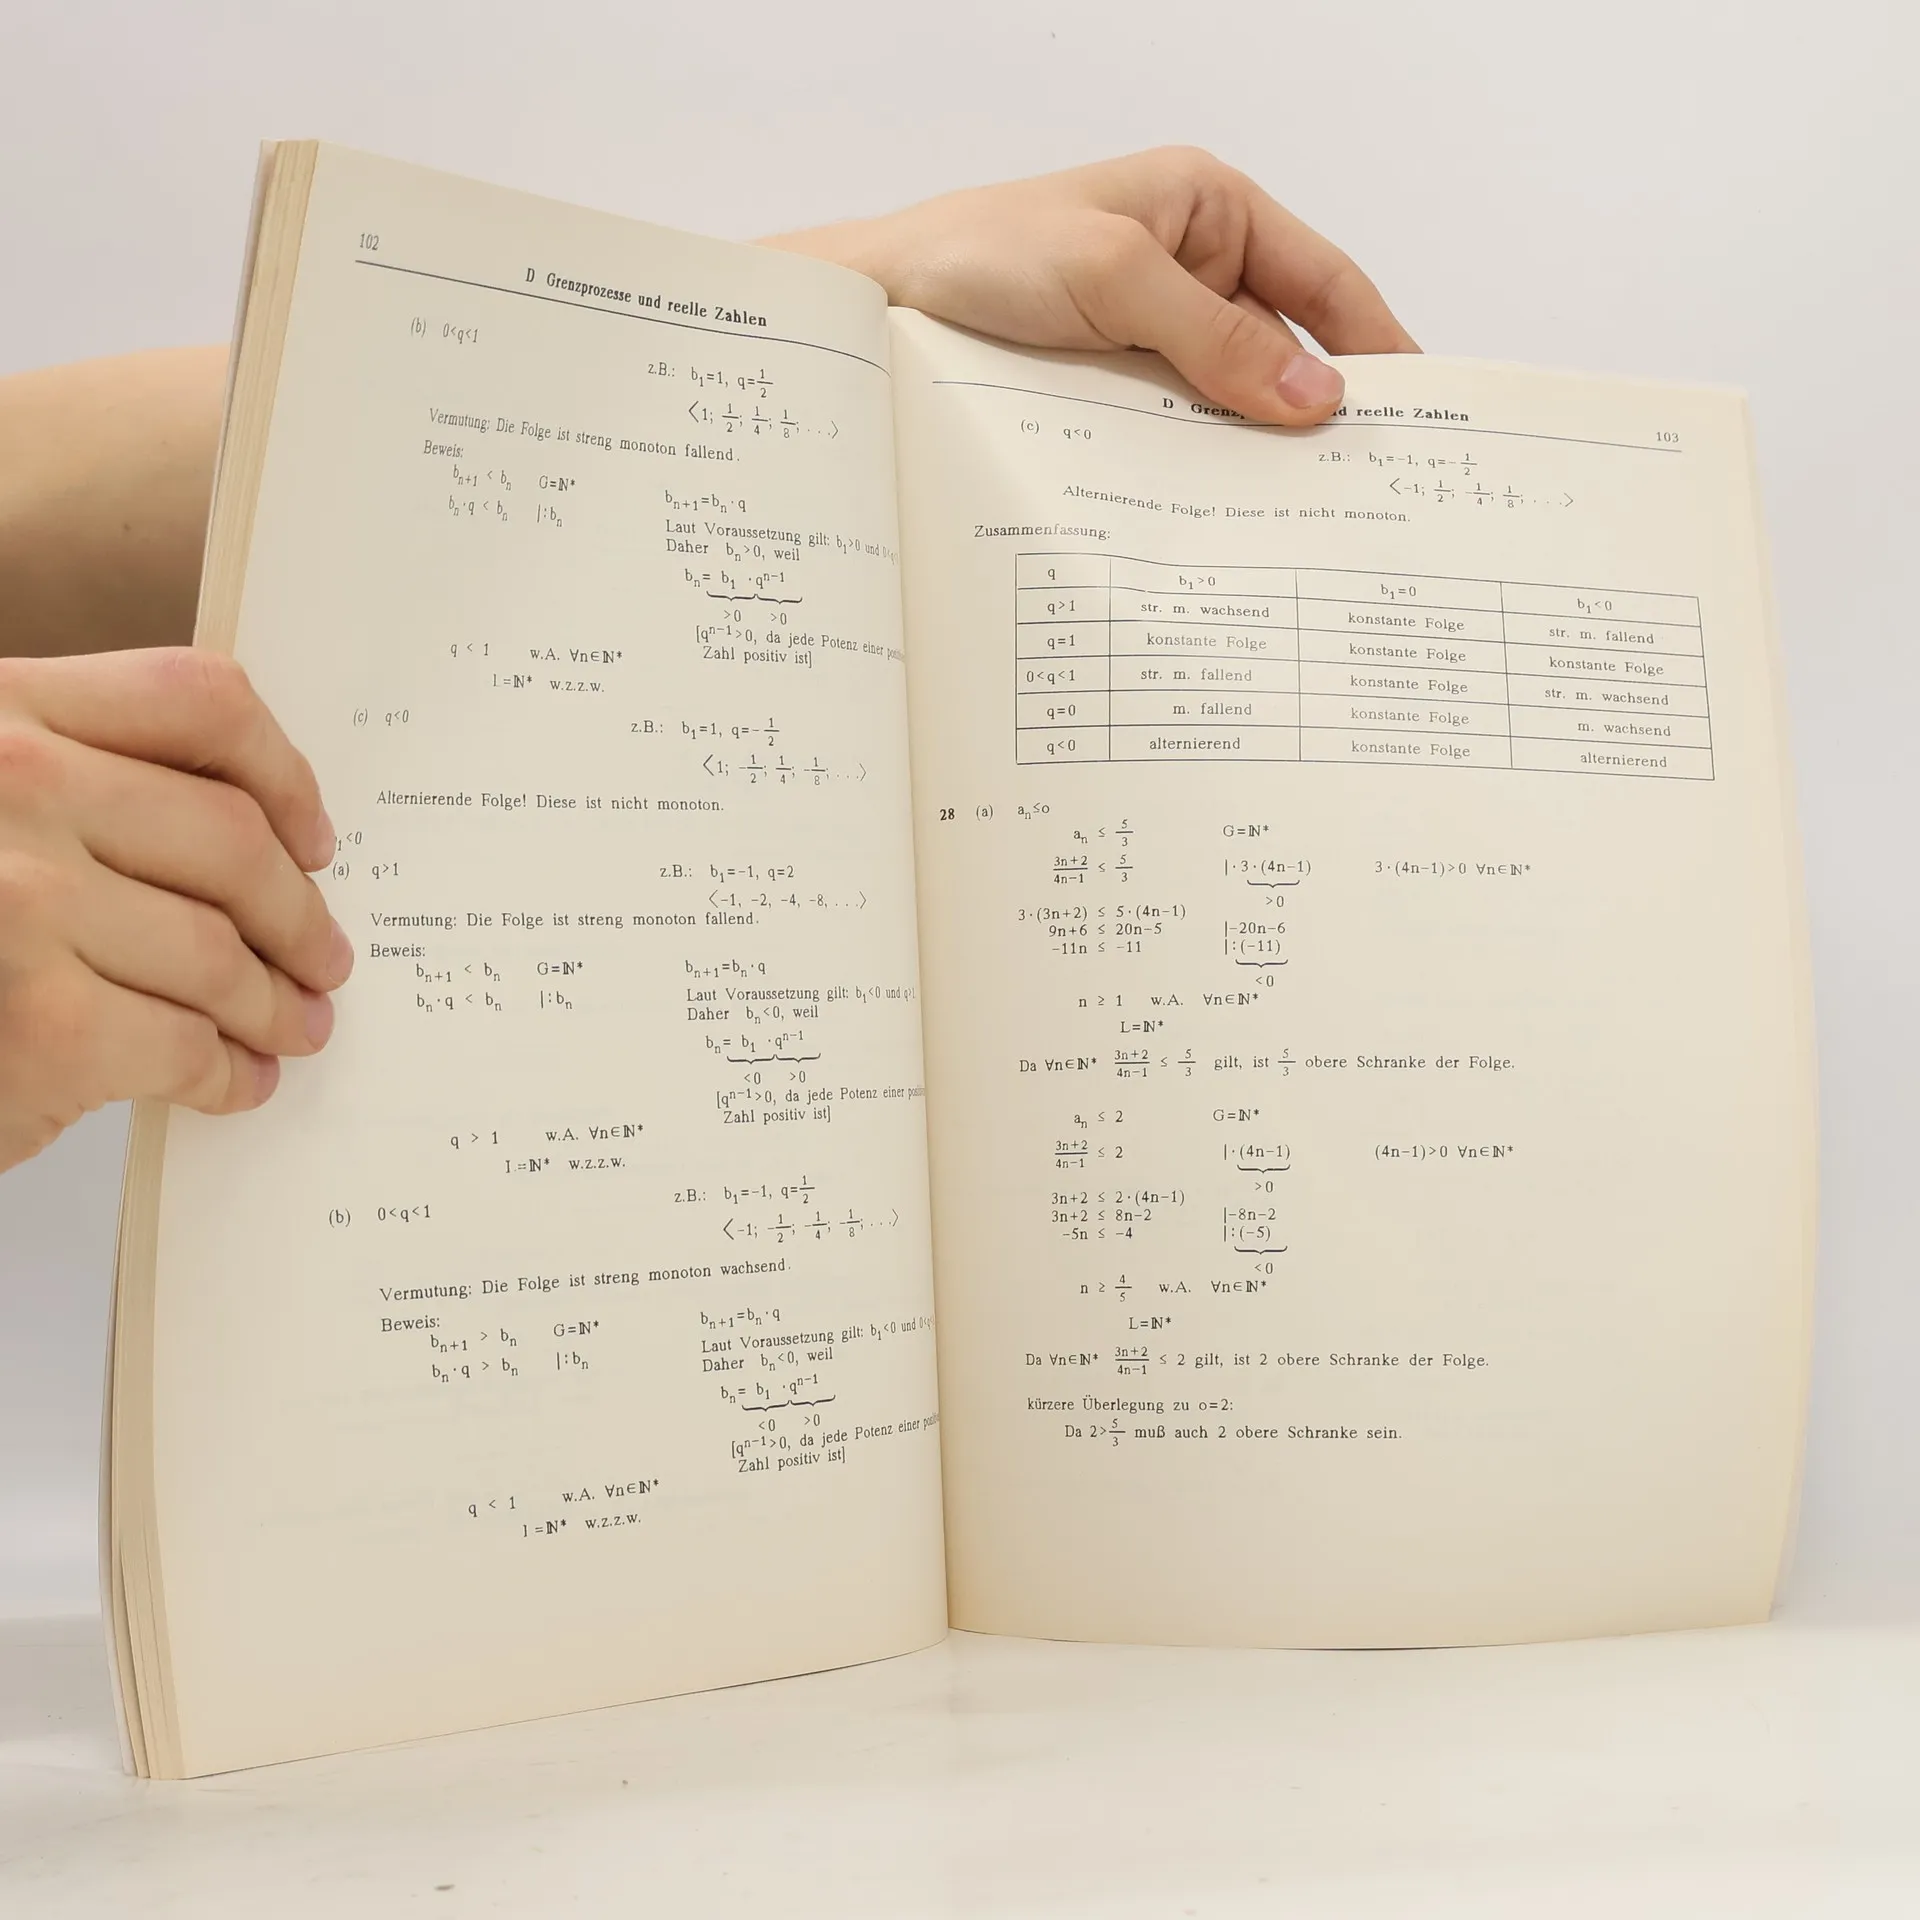 102
D Grenzprozesse und reelle Zahlen
(b) 0<q<1
z.B.: b₁=1, q=1/2
⟨1; 1/2; 1/4; 1/8; ...⟩
Vermutung: Die Folge ist streng monoton fallend.
Beweis:
bₙ₊₁ < bₙ G=ℕ* bₙ₊₁=bₙ·q
bₙ·q < bₙ |:bₙ Laut Voraussetzung gilt: b₁>0 und
Daher bₙ>0, weil
bₙ= b₁ ·qⁿ⁻¹
>0 >0
[qⁿ⁻¹>0, da jede Potenz einer
Zahl positiv ist]
q < 1 w.A. ∀n∈ℕ*
L=ℕ* w.z.z.w.
(c) q<0
z.B.: b₁=1, q=-1/2
⟨1; -1/2; 1/4; -1/8; ...⟩
Alternierende Folge! Diese ist nicht monoton.
<0
(a) q>1 z.B.: b₁=-1, q=2
⟨-1, -2, -4, -8, ...⟩
Vermutung: Die Folge ist streng monoton fallend.
Beweis:
bₙ₊₁ < bₙ G=ℕ* bₙ₊₁=bₙ·q
bₙ·q < bₙ |:bₙ Laut Voraussetzung gilt: b₁<0 und q>1
Daher bₙ<0, weil
bₙ= b₁ ·qⁿ⁻¹
<0 >0
[qⁿ⁻¹>0, da jede Potenz einer
Zahl positiv ist]
q > 1 w.A. ∀n∈ℕ*
L=ℕ* w.z.z.w.
(b) 0<q<1 z.B.: b₁=-1, q=1/2
⟨-1; -1/2; -1/4; -1/8; ...⟩
Vermutung: Die Folge ist streng monoton wachsend.
Beweis:
bₙ₊₁ > bₙ G=ℕ* bₙ₊₁=bₙ·q
bₙ·q > bₙ |:bₙ Laut Voraussetzung gilt: b₁<0 und
Daher bₙ<0, weil
bₙ= b₁ ·qⁿ⁻¹
<0 >0
[qⁿ⁻¹>0, da jede Potenz einer
Zahl positiv ist]
q < 1 w.A. ∀n∈ℕ*
L=ℕ* w.z.z.w.
D reelle Zahlen
103
(c) q<0
z.B.: b₁=-1, q=-1/2
⟨-1; 1/2; -1/4; 1/8; ...⟩
Alternierende Folge! Diese ist nicht monoton.
Zusammenfassung:
q b₁>0 b₁=0 b₁<0
q>1 str. m. wachsend konstante Folge str. m. fallend
q=1 konstante Folge konstante Folge konstante Folge
0<q<1 str. m. fallend konstante Folge str. m. wachsend
q=0 m. fallend konstante Folge m. wachsend
q<0 alternierend konstante Folge alternierend
28 (a) aₙ≤o
aₙ ≤ 5/3 G=ℕ*
3n+2/4n-1 ≤ 5/3 |·3·(4n-1) 3·(4n-1)>0 ∀n∈ℕ*
>0
3·(3n+2) ≤ 5·(4n-1)
9n+6 ≤ 20n-5 |-20n-6
-11n ≤ -11 |:(-11)
<0
n ≥ 1 w.A. ∀n∈ℕ*
L=ℕ*
Da ∀n∈ℕ* 3n+2/4n-1 ≤ 5/3 gilt, ist 5/3 obere Schranke der Folge.
aₙ ≤ 2 G=ℕ*
3n+2/4n-1 ≤ 2 |·(4n-1) (4n-1)>0 ∀n∈ℕ*
>0
3n+2 ≤ 2·(4n-1)
3n+2 ≤ 8n-2 |-8n-2
-5n ≤ -4 |:(-5)
<0
n ≥ 4/5 w.A. ∀n∈ℕ*
L=ℕ*
Da ∀n∈ℕ* 3n+2/4n-1 ≤ 2 gilt, ist 2 obere Schranke der Folge.
kürzere Überlegung zu o=2:
Da 2>5/3 muß auch 2 obere Schranke sein.